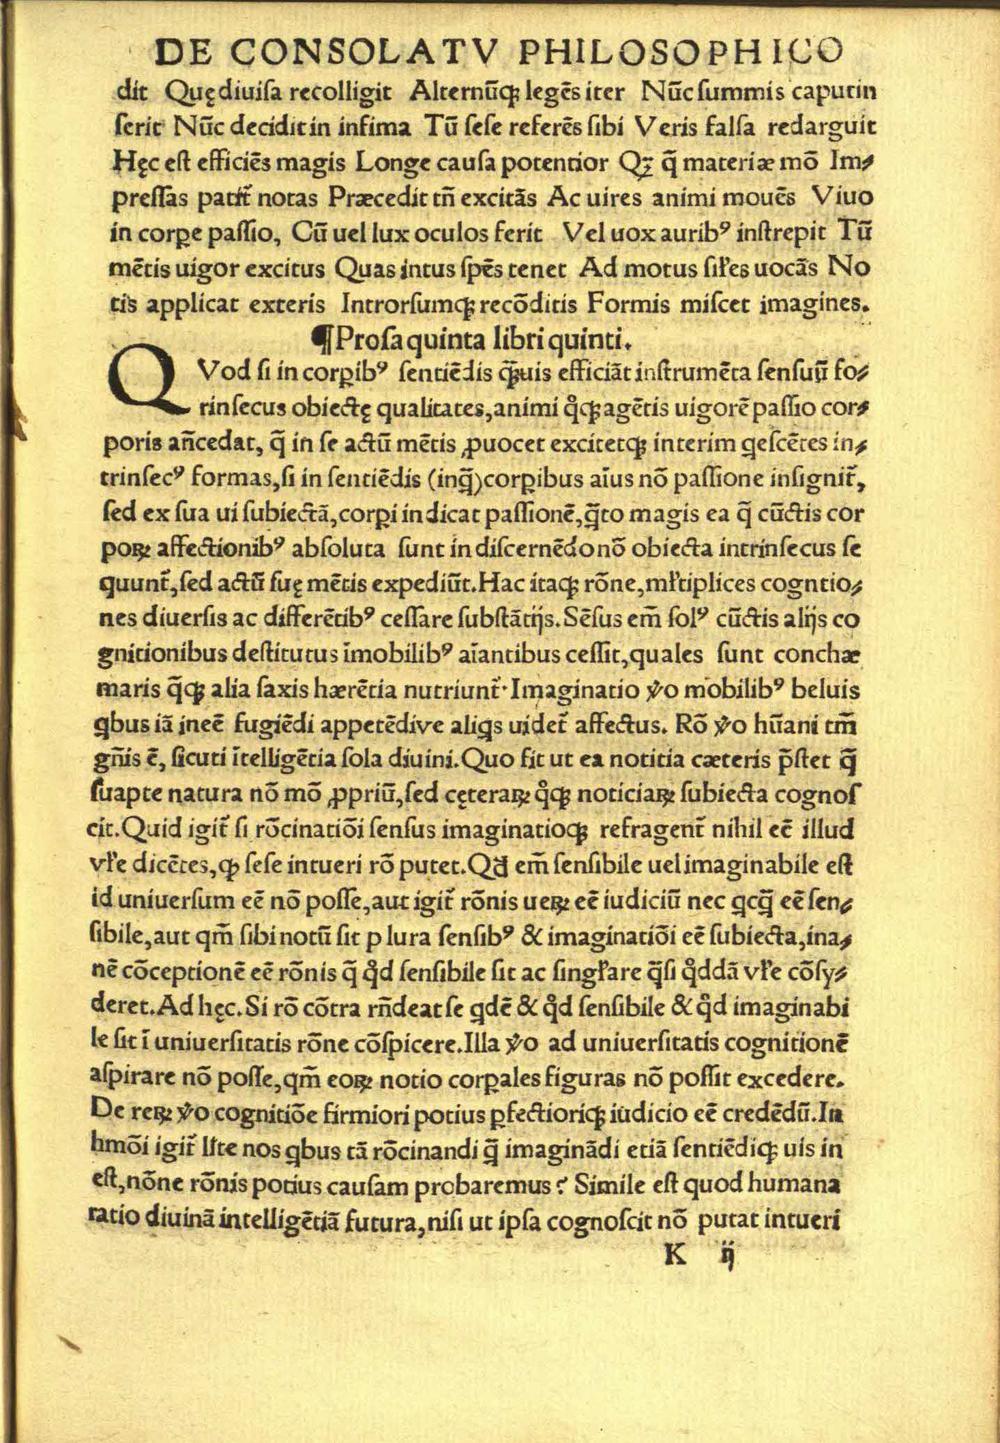 DE CONSOLATV PHILOSOPHICO
dit Quędiuiſa recolligit Alternũqꝫ legẽs iter Nũc ſummis caputin
ſerit Nũc deciditin infima Tũ ſeſe referẽs ſibi Veris falſa redarguit
Hęc eſt efficiẽs magis Longe cauſa potentior Qꝫ q̃ materiæ mõ Im⸗
preſſas patit᷑ notas Præcedit tñ excitãs Ac uires animi mouẽs Viuo
in corꝑe paſſio, Cũ uel lux oculos ferit Vel uox auribꝰ inſtrepit Tũ
mẽtis uigor excitus Quas intus ſpẽs tenet Ad motus ſiƚes uocãs No
tis applicat exteris Introrſumqꝫ recõditis Formis miſcet imagines.
¶Proſa quinta libri quinti.
QVod ſi in corꝑibꝰ ſentiẽdis q̃uis efficiãt inſtrumẽta ſenſuũ fo⸗
rinſecus obiectę qualitates, animi q̊qꝫ agẽtis uigorẽ paſſio cor⸗
poris añcedat, q̃ in ſe actũ mẽtis ꝓuocet excitetqꝫ interim ꝗeſcẽtes in⸗
trinſecꝰ formas, ſi in ſentiẽdis (inq̃)corꝑibus aĩus nõ paſſione inſignit᷑,
ſed ex ſua ui ſubiectã, corꝑi indicat paſſionẽ, q̃to magis ea q̃ cũctis cor
poꝝ affectionibꝰ abſoluta ſunt in diſcernẽdo nõ obiecta intrinſecus ſe
quunt᷑, ſed actũ ſuę mẽtis expediũt. Hac itaqꝫ rõne, mƚtiplices cogntio⸗
nes diuerſis ac differẽtibꝰ ceſſare ſubſtãtijs. Sẽſus em̃ ſolꝰ cũctis alijs co
gnitionibus deſtitutus ĩmobilibꝰ aĩantibus ceſſit, quales ſunt conchæ
maris q̃qꝫ alia ſaxis hærẽtia nutriunt᷑· Imaginatio ꝟo mobilibꝰ beluis
ꝗbus iã ineẽ fugiẽdi appetẽdive aliꝗs uidet᷑ affectus. Rõ ꝟo hũani tm̃
gñis ẽ, ſicuti ĩtelligẽtia ſola diuini. Quo fit ut ea notitia cæteris p̃ſtet q̃
ſuapte natura nõ mõ ꝓpriũ, ſed cęteraꝝ q̊qꝫ noticiaꝝ ſubiecta cognoſ
cit. Quid igit᷑ ſi rõcinatiõi ſenſus imaginatioqꝫ refragent᷑ nihil eẽ illud
vƚe dicẽtes, ꝙ ſeſe intueri rõ putet. Qđ em̃ ſenſibile uel imaginabile eſt
id uniuerſum eẽ nõ poſſe, aut igit᷑ rõnis ueꝝ eẽ iudiciũ nec ꝗcq̃ eẽ ſen⸗
ſibile, aut qm̃ ſibi notũ ſit plura ſenſibꝰ & imaginatiõi eẽ ſubiecta, ina⸗
nẽ cõceptionẽ eẽ rõnis q̃ q̊d ſenſibile ſit ac ſingƚare q̃ſi q̊ddã vƚe cõſy⸗
deret. Ad hęc. Si rõ cõtra rñdeat ſe ꝗdẽ & q̊d ſenſibile & q̊d imaginabi
le ſit ĩ uniuerſitatis rõne cõſpicere. Illa ꝟo ad uniuerſitatis cognitionẽ
aſpirare nõ poſſe, qm̃ eoꝝ notio corꝑales figuras nõ poſſit excedere.
De reꝝ ꝟo cognitiõe firmiori potius ꝑfectioriqꝫ iudicio eẽ credẽdũ. In
hmõi igit᷑ lite nos ꝗbus tã rõcinandi q̃ imaginãdi etiã ſentiẽdiqꝫ uis in
eſt, nõne rõnis potius cauſam probaremus? Simile eſt quod humana
ratio diuinã intelligẽtiã futura, niſi ut ipſa cognoſcit nõ putat intueri
K ij